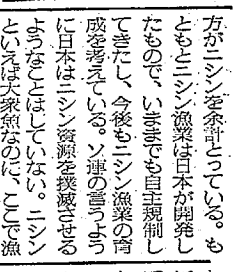 方がニシンを余計とっている。も
ともとニシン漁業は日本が開発し
たもので、いままでも自主規制し
てきたし、今後もニシン漁業の育
成を考えている。ソ連の言うよう
に日本はニシン資源を撲滅させる
ようなことはしていない。ニシン
といえば大衆魚なのに、ここで漁